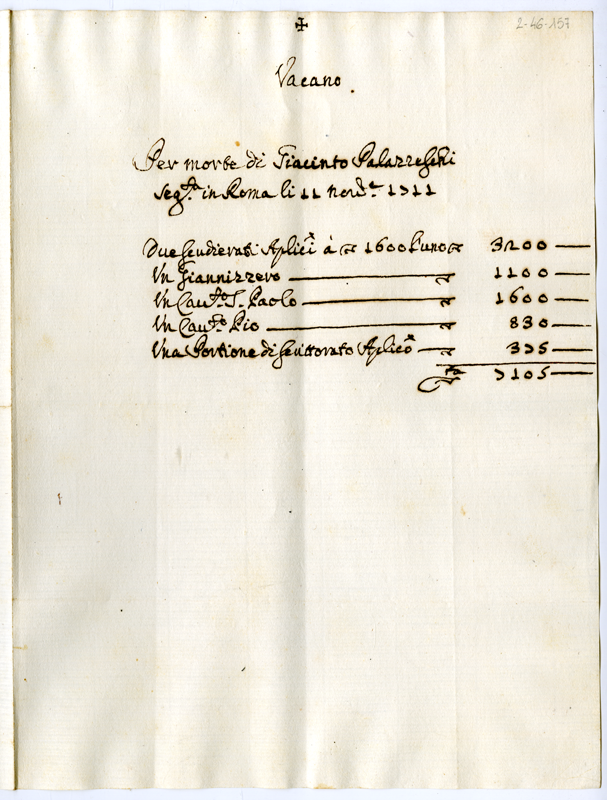 ✠
2-46-157
Vacano
Per morte di Giacinto Palazzeschi
seg.ta in Roma li 11 nov.
Due scudierati Aplici à 1600 l'uno 3200
Un Giannizzero 1100
Un Cau.to S. Paolo 1600
Un Cau.to Pio 830
Una Portione di scrittorato Aplico 375
7105